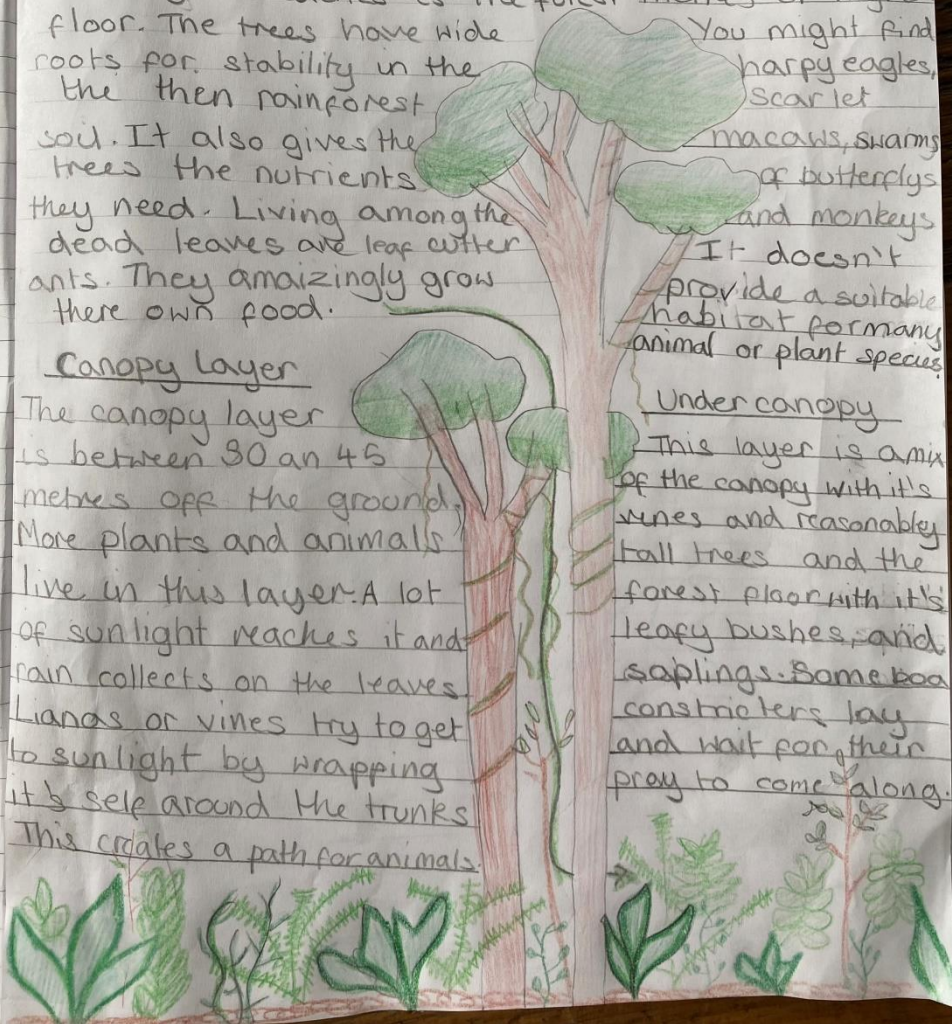 floor. The trees have wide
roots for stability in the
the then rainforest
soil. It also gives the
trees the nutrients
they need. Living among the
dead leaves are leaf cutter
ants. They amaizingly grow
there own food.
Canopy Layer
The canopy layer
is between 30 an 45
metres off the ground.
More plants and animals
live in this layer. A lot
of sunlight reaches it and
rain collects on the leaves
Lianas or vines try to get
to sunlight by wrapping
it's self around the trunks
This creates a path for animals.
You might find
harpy eagles,
Scarlet
macaws, swarms
of butterflys
and monkeys
It doesn't
provide a suitable
habitat for many
animal or plant species.
Under canopy
This layer is a mix
of the canopy with it's
vines and reasonably
tall trees and the
forest floor with it's
leafy bushes, and
saplings. Some boa
constricters lay
and wait for their
pray to come along.